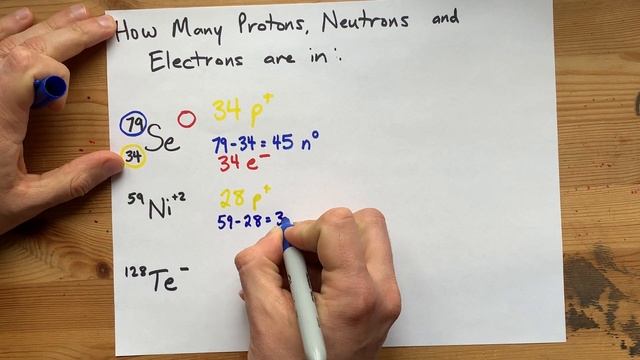 How Many Protons, Neutrons and
Electrons are in:
79 34 Se 34 p⁺
79-34 = 45 n⁰
34 e⁻
⁵⁹Ni⁺² 28 p⁺
59-28 = 3
¹²⁸Te⁻